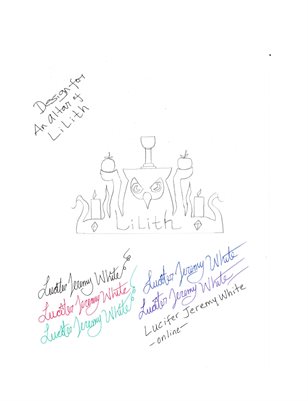 Design for
An Altar of
LiLith
LiLith
Lucifer Jeremy White
Lucifer Jeremy White
Lucifer Jeremy White
Lucifer Jeremy White
Lucifer Jeremy White
Lucifer Jeremy White
-online-